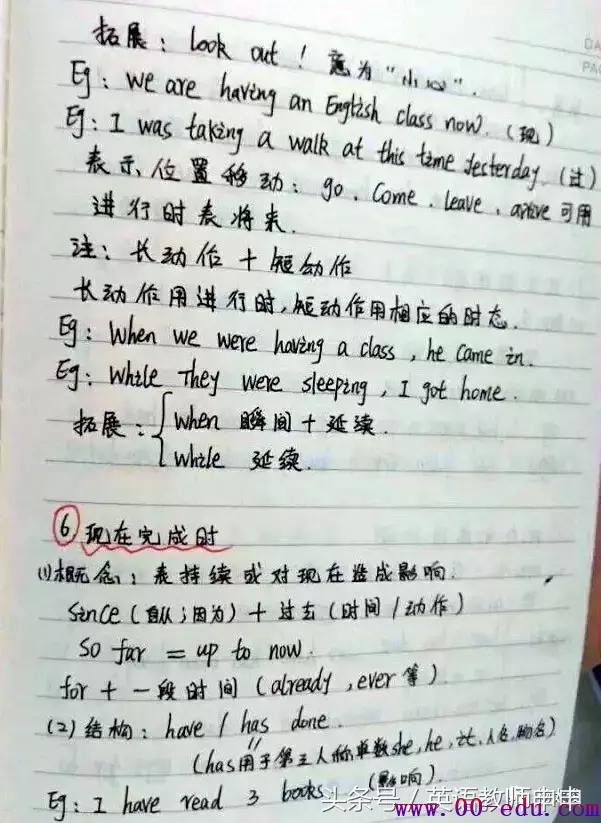 DA
PAG
拓展：look out！意为“小心”．
Eg：we are having an English class now.（现）
Eg：I was taking a walk at this time Yesterday.（过）
表示位置移动：go．Come．leave．arrive 可用
进行时表将来．
注：长动作＋短动作
长动作用进行时，短动作用相应的时态．
Eg：When we were having a class，he came in.
Eg：While they were sleeping，I got home．
拓展：{when 瞬间＋延续．
while 延续．
⑥现在完成时
(1)概念：表持续或对现在造成影响．
Since（自从；因为）＋过去（时间/动作）
So far = up to now．
for＋一段时间（already，ever 等）
(2)结构：have / has done．
(has用于第三人称单数she，he，it，人名，物名)
Eg：I have read 3 books （影响）．
头条号／英语教师
www.00-edu.com